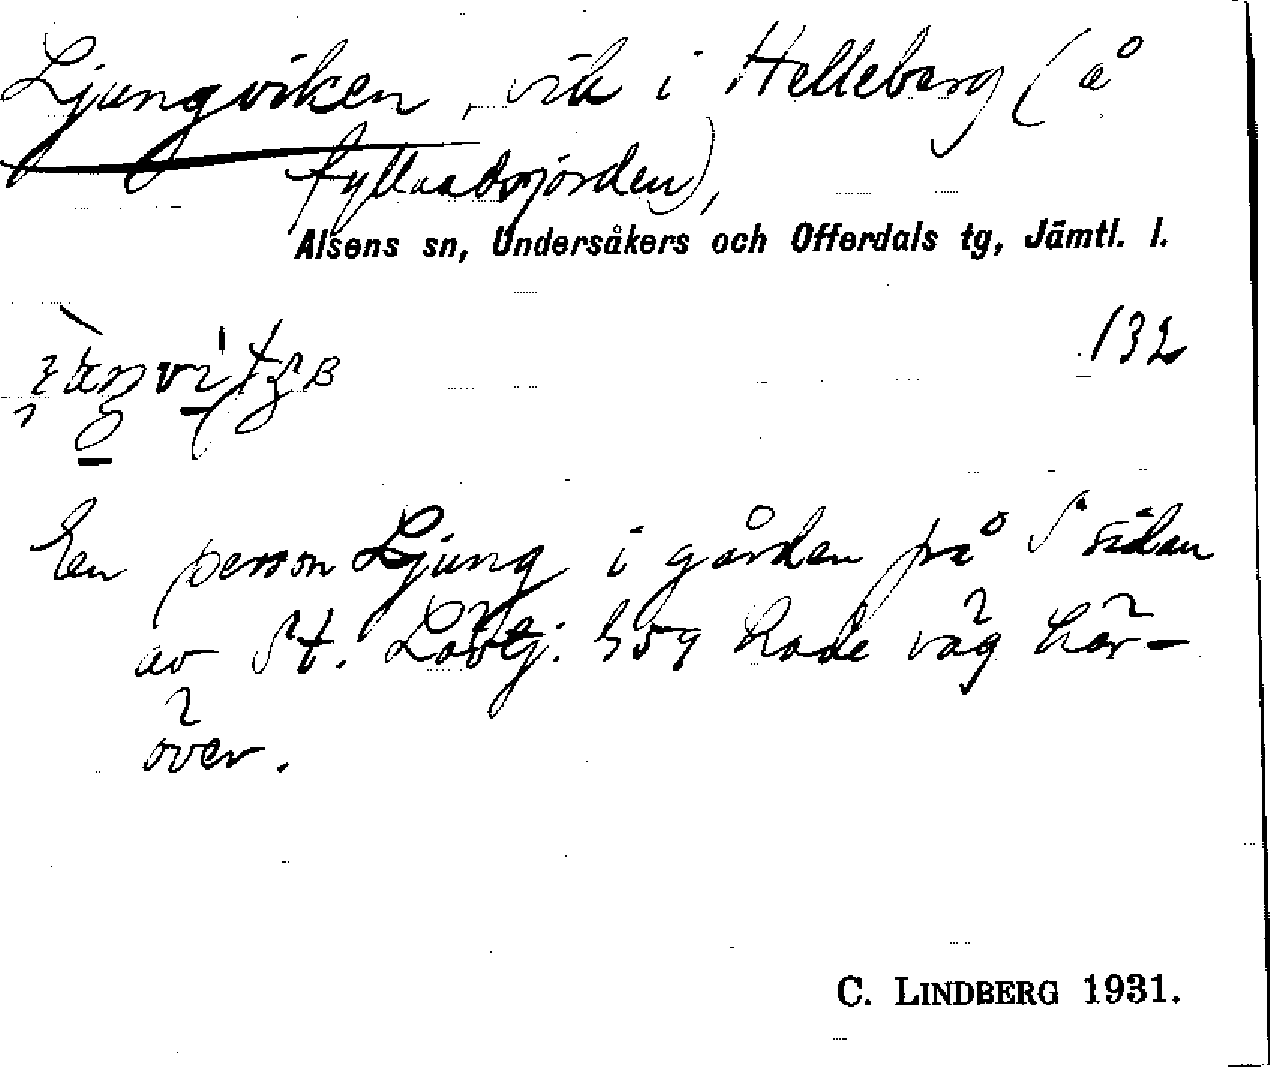 Ljungviken, vik i Helleberg (å
fyllnadsjorden),
Alsens sn, Undersåkers och Offerdals tg, Jämtl. l.
132
En person Ljung i gården på S sidan
av St. Lövsj. hade väg här-
över.
C. LINDBERG 1931.